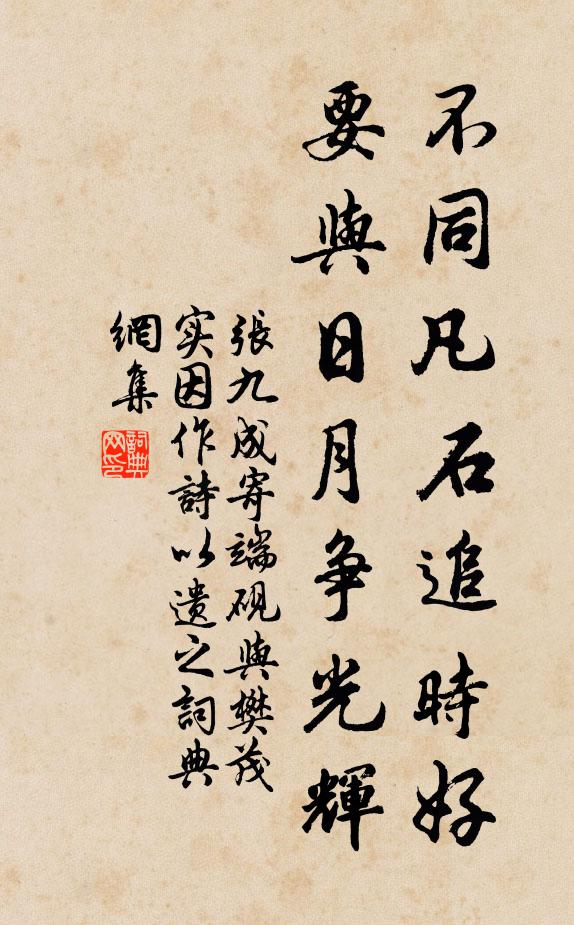 不同凡石追時好
要與日月争光輝
張九成寄端硯與樊茂
实因作詩以遗之詞典
網集
詞典
网印